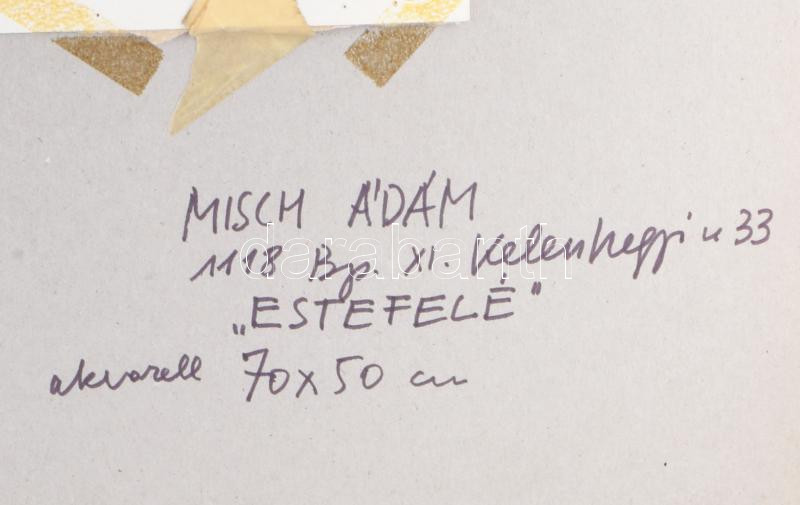 MISCH ÁDÁM
1118 Bp. XI. Kelenhegyi u 33
„ESTEFELÉ"
akvarell 70x50 cm
darabanth